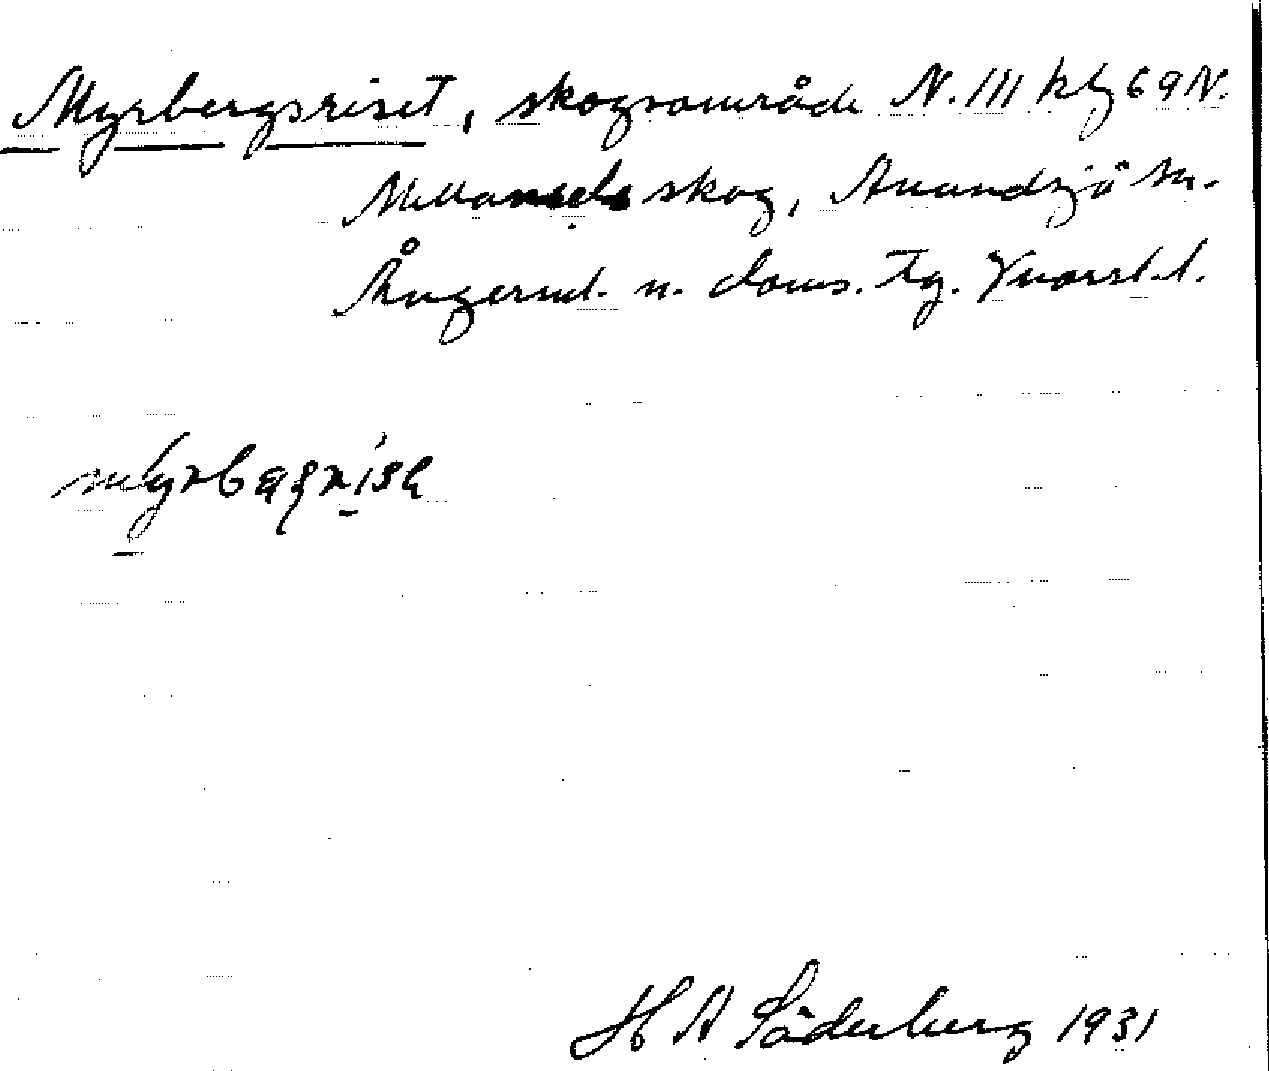 Myrbergsriset, skogsområde N. III kb 69 N.
Mellansels skog, Anundsjö sn.
Ångerml. n. doms. tg. Vnorrl. l.
H A Söderberg 1931